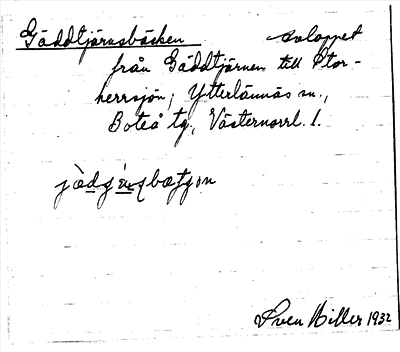 Gäddtjärnsbäcken avloppet
från Gäddtjärnen till Stor-
herrsjön; Ytterlännäs sn.,
Boteå tg, Västernorrl. l.
Sven Hiller 1932